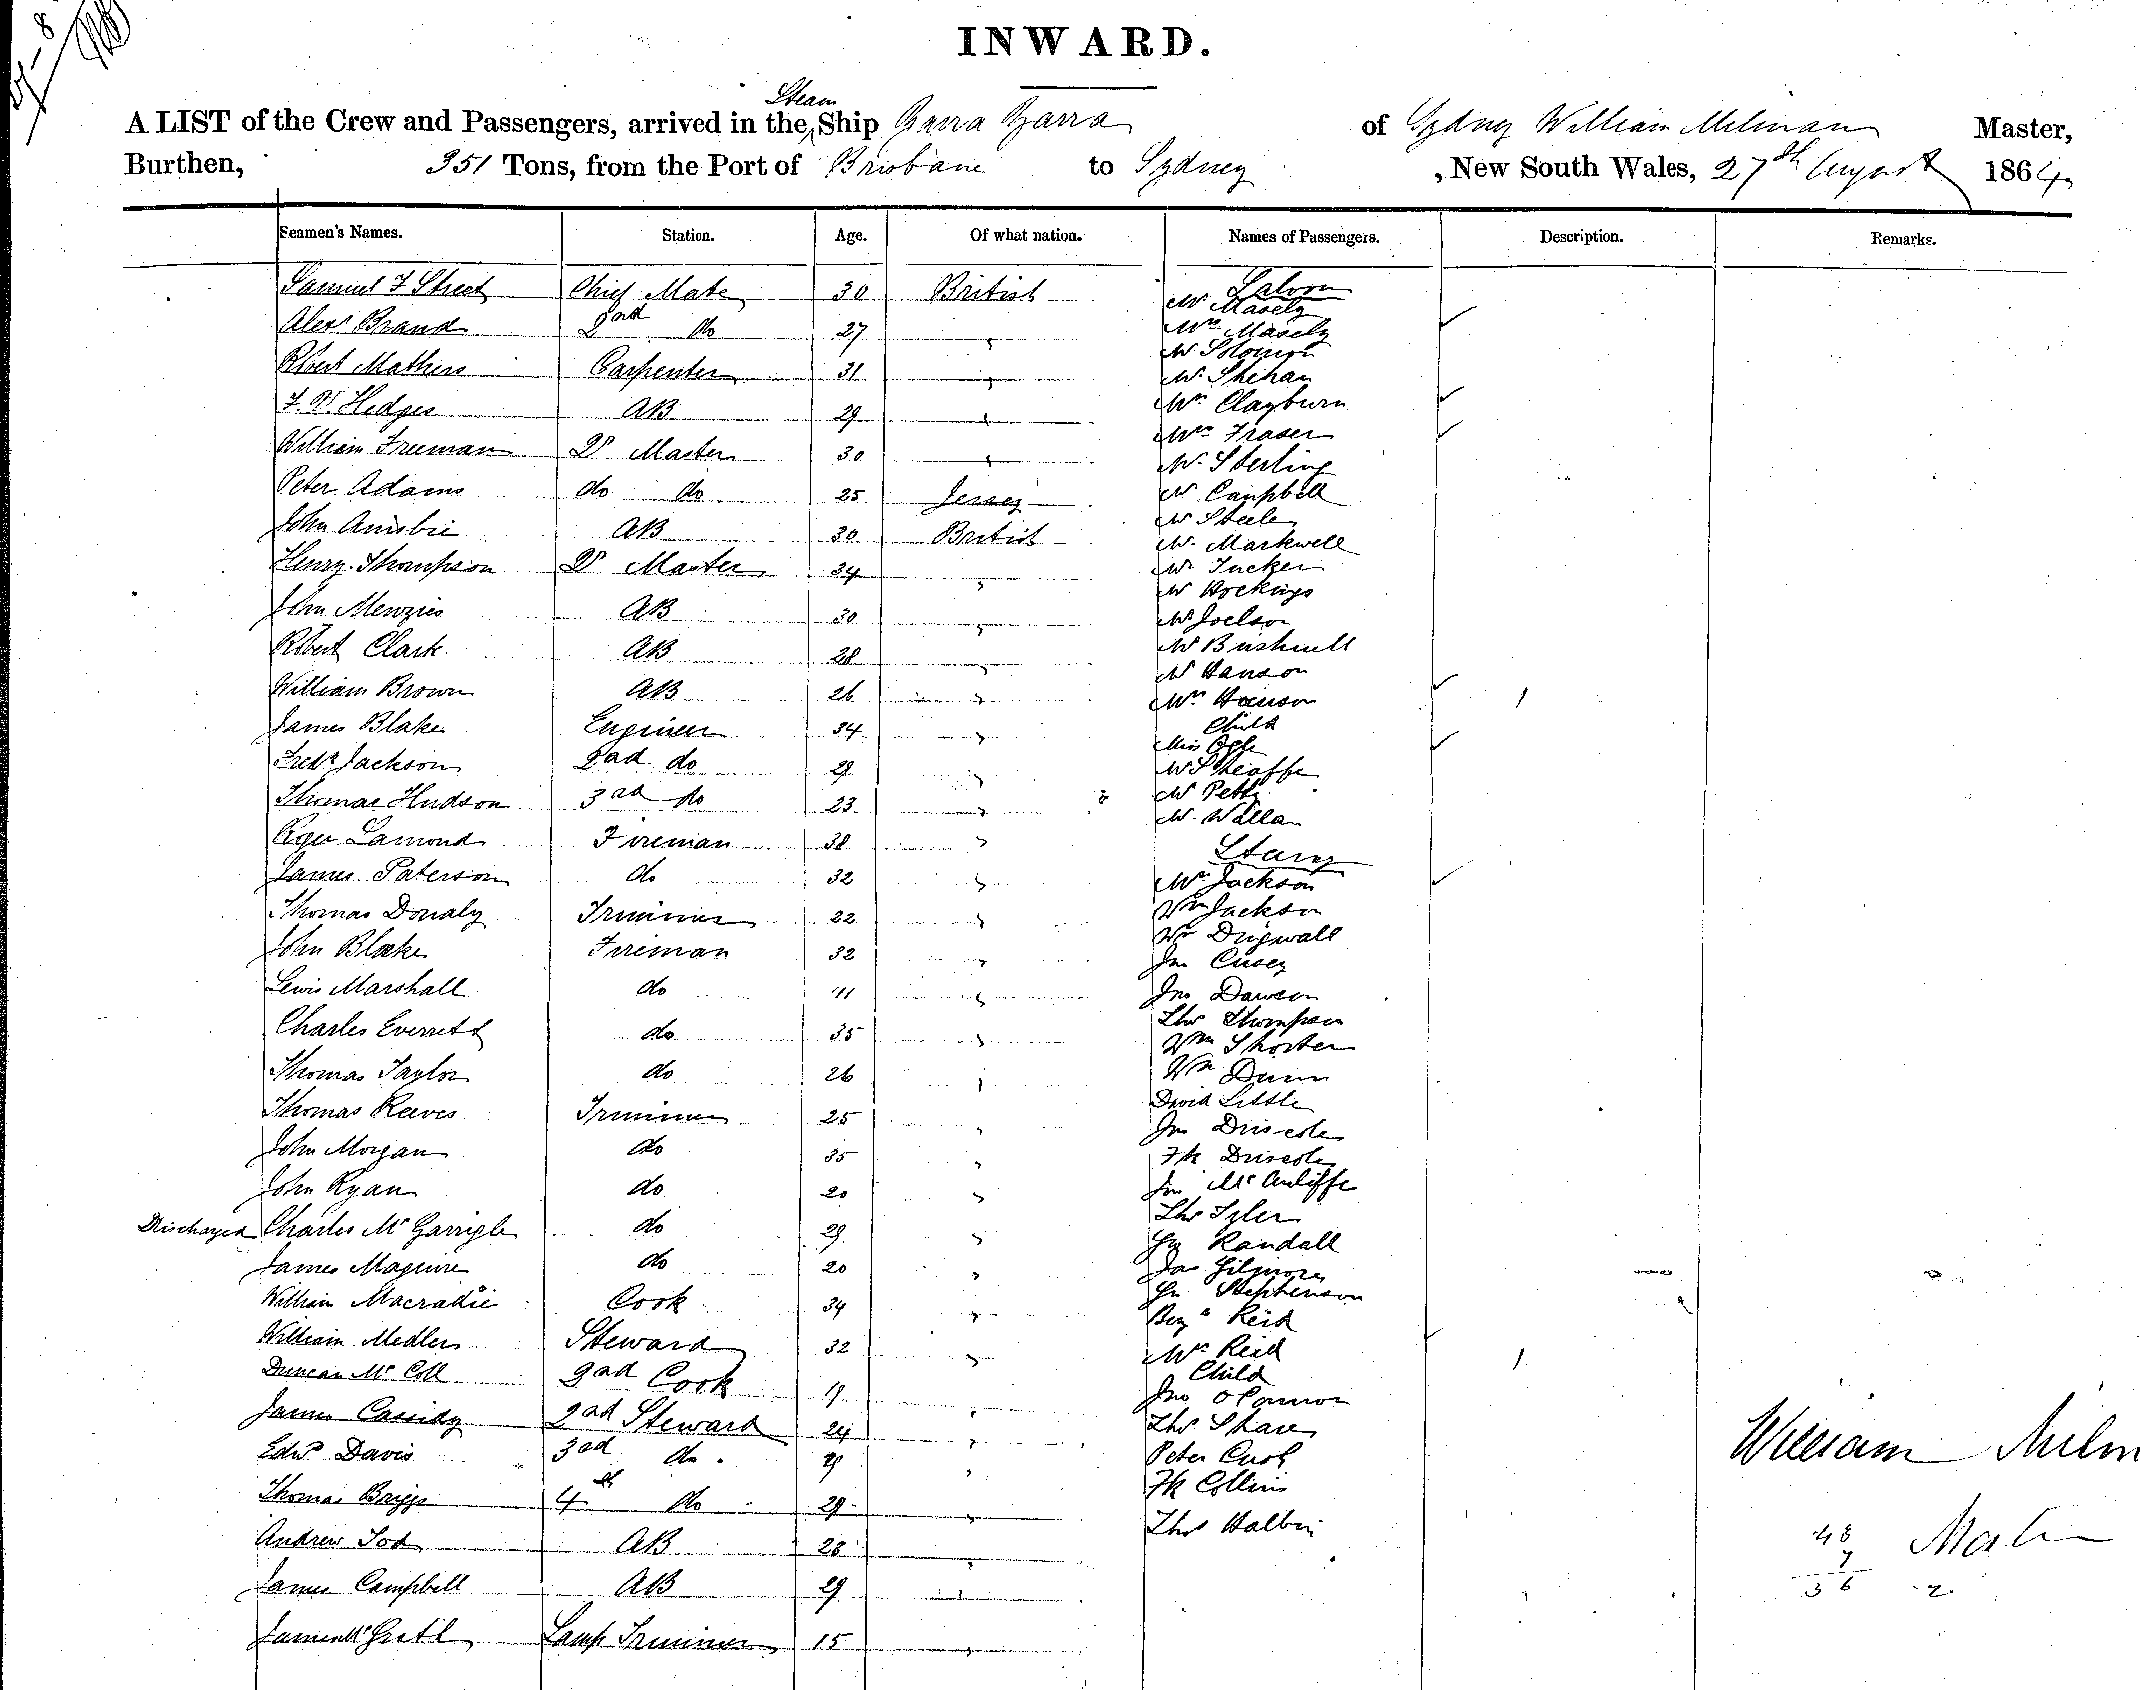 INWARD.
A LIST of the Crew and Passengers, arrived in the Steam Ship Yarra Yarra of Sydney William Milman Master,
Burthen, 351 Tons, from the Port of Brisbane to Sydney , New South Wales, 27th August 1864
Seamen's Names. Station. Age. Of what nation. Names of Passengers. Description. Remarks.
Samuel F Street Chief Mate 30 British Saloon
Mr Masely
Alexr Brand 2nd do 27 "
Mrs Masely
Mr Solomon
Robert Mathers Carpenter 31 " Mr Shehan
F. W. Hedges AB 29 " Mrs Clayburn
Mrs Fraser
William Freeman Qr Master 30 " Mr Sterling
Peter Adams do do 25 Jersey Mr Campbell
Mr Steele
John Ainsbie AB 30 British Mr Markwell
Henry Thompson Qr Master 34 " Mr Tucker
Mr Hockings
John Menzies AB 30 " Mr Joelson
Robert Clark AB 28 " Mr Bushnell
Mr Hanson
William Brown AB 26 " Mrs Hanson 1
James Blake Engineer 34 " Child
Miss
Fredk Jackson 2nd do 29 " Mr Sheaffe
Thomas Hudson 3rd do 23 " Mr Petty
Mr Willan
Roger Lamond Fireman 38 " Steerage
James Paterson do 32 " Mrs Jackson
Thomas Donaly Trimmer 22 " Wm Jackson
John Blake Fireman 32 " Wm Drigwall
Jn Cusey
Lewis Marshall do 41 " Jno Dawson
Charles Everett do 35 " Thos Thompson
Wm Shorter
Thomas Taylor do 26 " Wm Dunn
Thomas Reeves Trimmer 25 " David Little
Jn Driscole
John Morgan do 35 " Fk Driscole
John Ryan do 20 " Jn McAuliffe
Discharged Charles McGarrigle do 29 " Thos Tyler
Randall
James Maguire do 20 " Jas Gilmore
William Macradie Cook 34 " Stephenson
Benj Reid
William Medler Steward 32 " Mrs Reid 1
Duncan McColl 2nd Cook 19 " Child
Jno O'Connor
James Cassidy 2nd Steward 24 " Thos Share
Edwd Davis 3rd do 29 " Peter Cush
Thomas Briggs 4th do 29 " Fk Collins
Thos Halbin
Andrew Tod AB 28 "
James Campbell AB 29 "
James McGrath Lamp Trimmer 15 "
William Milm
48
7
36 2